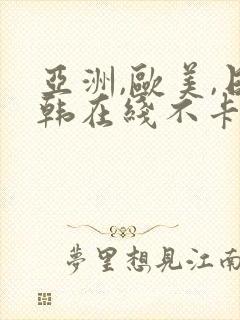 亞洲,歐美,日
韩在綫不卡
夢里想見江南